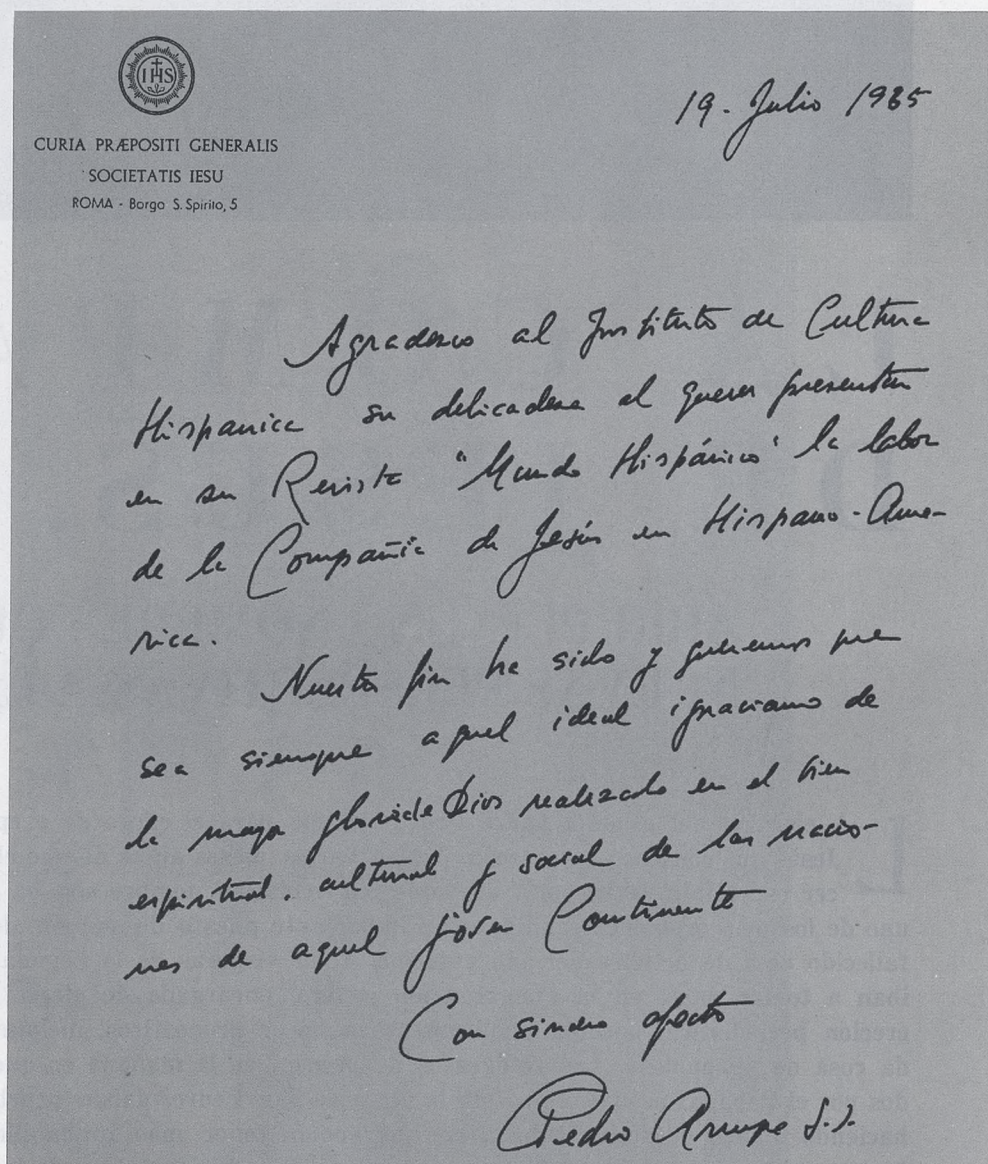 IHS
CURIA PRÆPOSITI GENERALIS
SOCIETATIS IESU
ROMA - Borgo S. Spirito, 5
19. Julio 1965
Agradezco al Instituto de Cultura
Hispanica su delicadeza al querer presentar
en su Revista "Mundo Hispánico" la labor
de la Compañia de Jesús en Hispano-Ame-
rica.
Nuestro fin ha sido y queremos que
sea siempre aquel ideal ignaciano de
la mayor gloria de Dios realizado en el bien
espiritual, cultural y social de las nacio-
nes de aquel joven Continente
Con sincero afecto
Pedro Arrupe S.J.